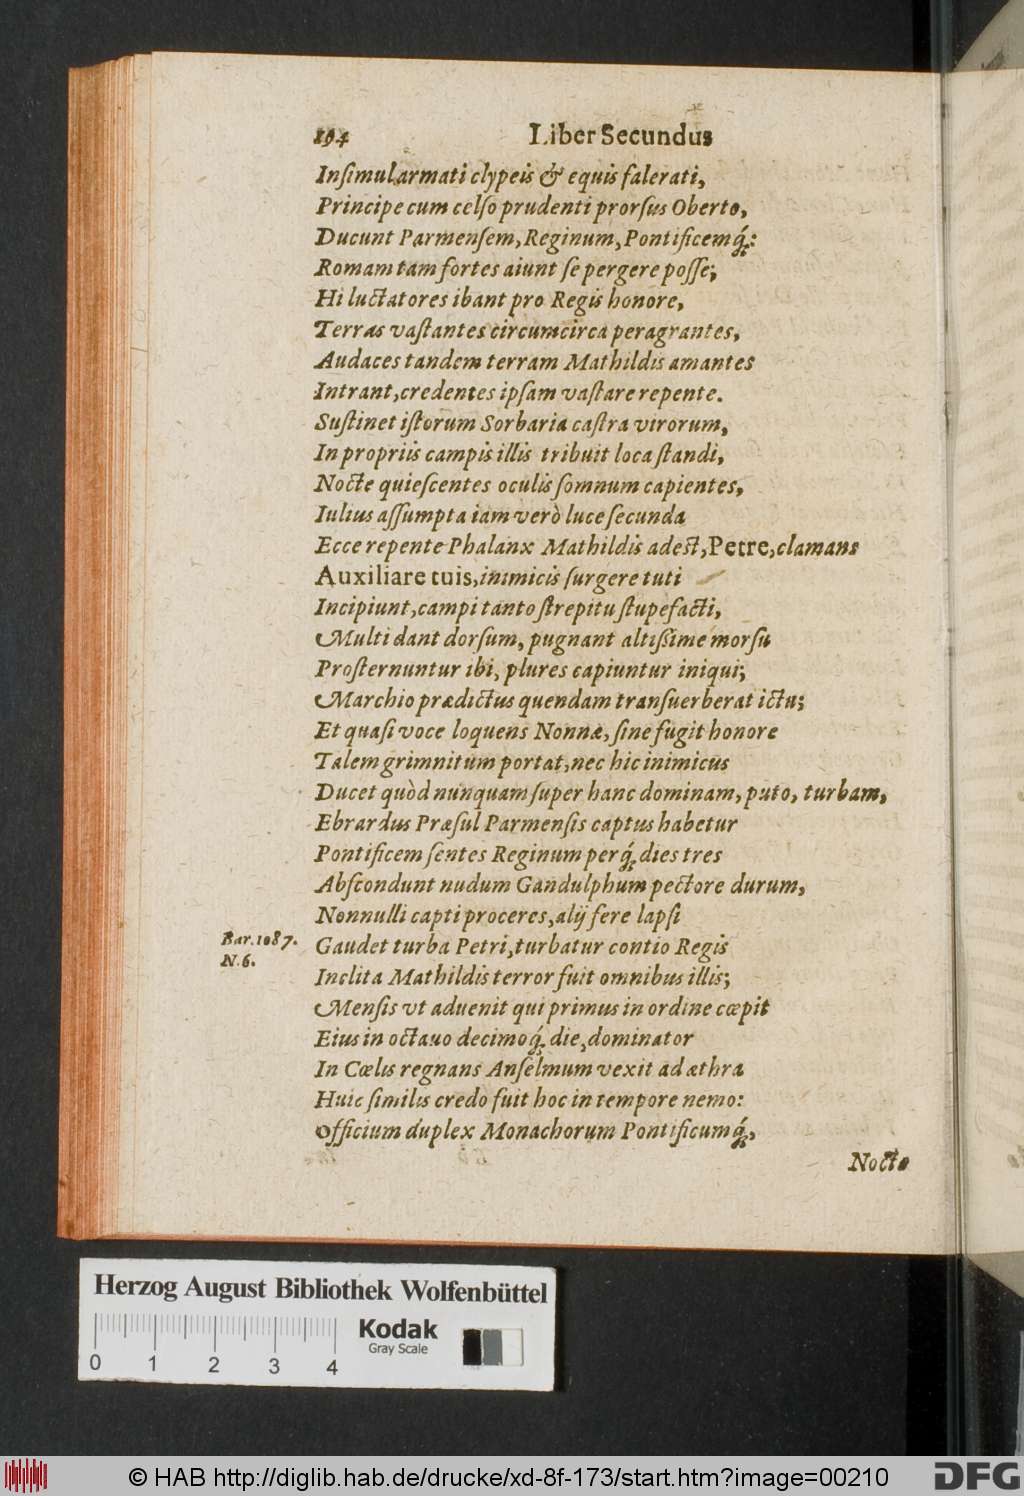 194 Liber Secundus
Inſimul armati clypeis & equis falerati,
Principe cum celſo prudenti prorſus Oberto,
Ducunt Parmenſem, Reginum, Pontificemq́;:
Romam tam fortes aiunt ſe pergere poſſe;
Hi luctatores ibant pro Regis honore,
Terras vaſtantes circumcirca peragrantes,
Audaces tandem terram Mathildis amantes
Intrant, credentes ipſam vaſtare repente.
Suſtinet iſtorum Sorbaria caſtra virorum,
In propriis campis illis tribuit loca ſtandi,
Nocte quieſcentes oculis ſomnum capientes,
Iulius aſſumpta iam verò luce ſecunda
Ecce repente Phalanx Mathildis adest, Petre, clamans
Auxiliare tuis, inimicis ſurgere tuti
Incipiunt, campi tanto ſtrepitu ſtupefacti,
Multi dant dorſum, pugnant altiſſime morſu
Proſternuntur ibi, plures capiuntur iniqui;
Marchio prædictus quendam tranſuerberat ictu;
Et quaſi voce loquens Nonnæ, ſine fugit honore
Talem grimnitum portat, nec hic inimicus
Ducet quòd nunquam ſuper hanc dominam, puto, turbam,
Ebrardus Præſul Parmenſis captus habetur
Pontificem ſentes Reginum perq́; dies tres
Abſcondunt nudum Gandulphum pectore durum,
Nonnulli capti proceres, alij fere lapſi
Bar. 1087.
N. 6.
Gaudet turba Petri, turbatur contio Regis
Inclita Mathildis terror fuit omnibus illis;
Menſis vt aduenit qui primus in ordine cœpit
Eius in octauo decimoq́; die, dominator
In Cœlis regnans Anſelmum vexit ad æthra
Huic ſimilis credo fuit hoc in tempore nemo:
Officium duplex Monachorum Pontificumq́;,
Nocte
Herzog August Bibliothek Wolfenbüttel
Kodak
Gray Scale
0 1 2 3 4
© HAB http://diglib.hab.de/drucke/xd-8f-173/start.htm?image=00210
DFG